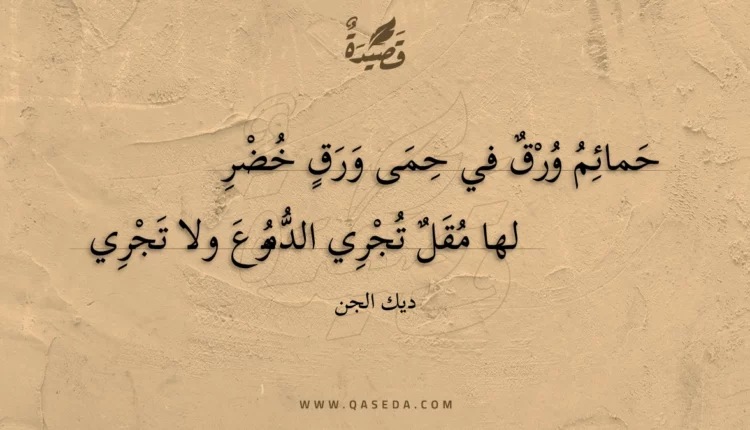 قَصِيدَةٌ
حَمائِمُ وُرْقٌ في حِمَى وَرَقٍ خُضْرِ
لها مُقَلٌ تُجْرِي الدُّمُوعَ ولا تَجْرِي
ديك الجن
WWW.QASEDA.COM